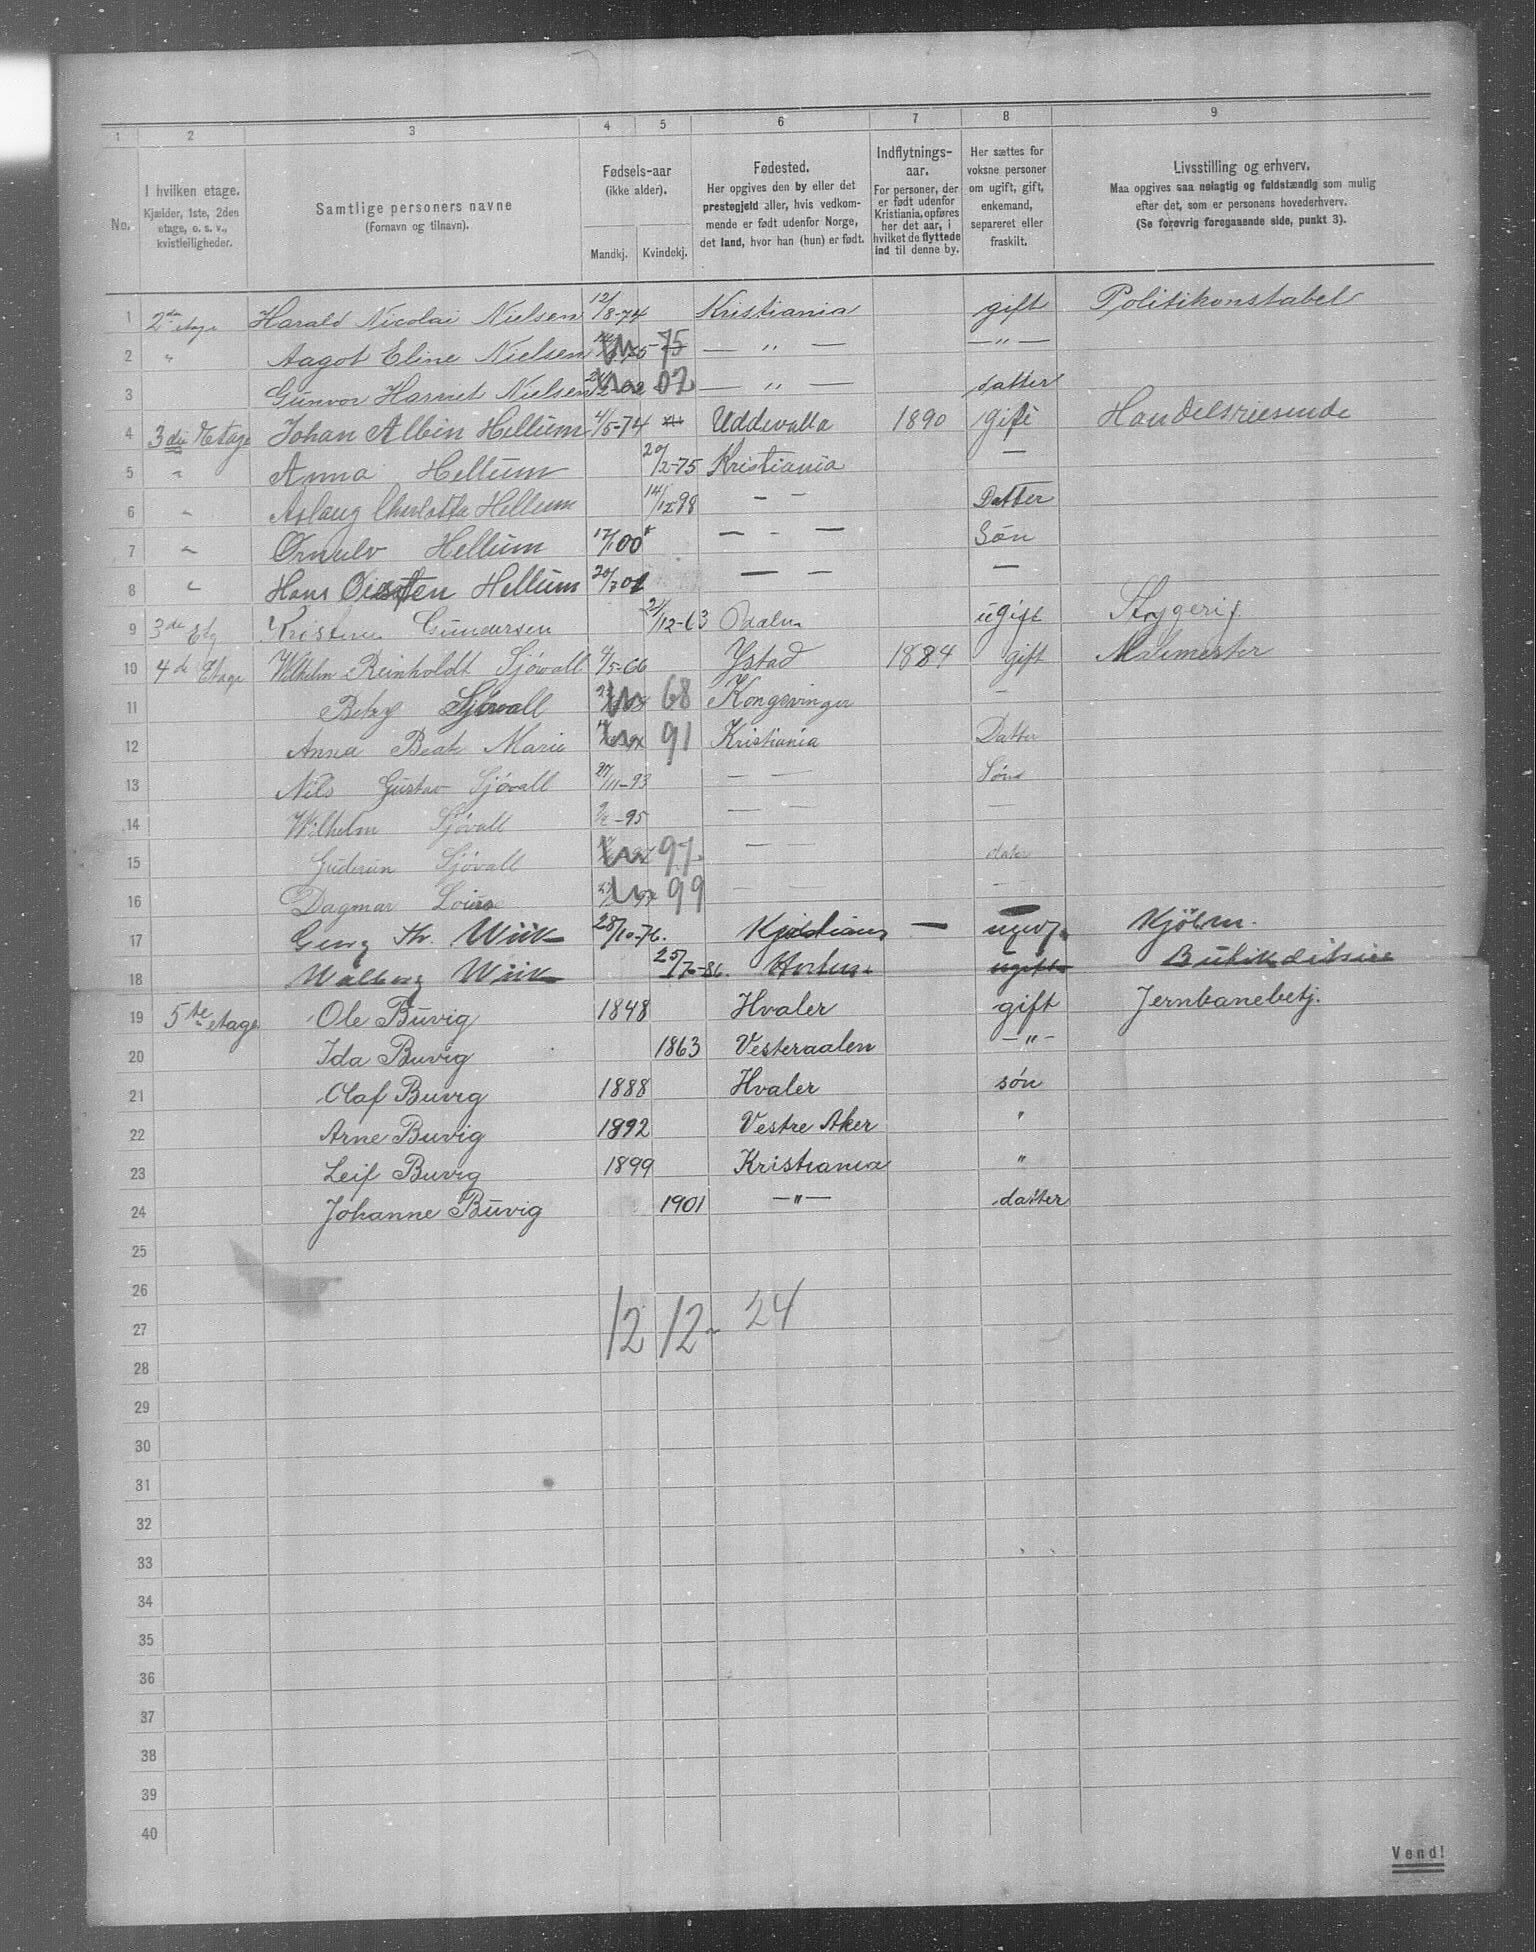 1 2 3 4 5 6 7 8 9
No.
I hvilken etage.
Kjælder, 1ste, 2den
etage, o. s. v.,
kvistleiligheder.
Samtlige personers navne
(Fornavn og tilnavn).
Fødsels-aar
(ikke alder).
Mandkj. Kvindekj.
Fødested.
Her opgives den by eller det
prestegjeld eller, hvis vedkom-
mende er født udenfor Norge,
det land, hvor han (hun) er født.
Indflytnings-
aar.
For personer, der
er født udenfor
Kristiania, opføres
her det aar, i
hvilket de flyttede
ind til denne by.
Her sættes for
voksne personer
om ugift, gift,
enkemand,
separeret eller
fraskilt.
Livsstilling og erhverv.
Maa opgives saa nøiagtig og fuldstændig som mulig
efter det, som er personens hovederhverv.
(Se forøvrig foregaaende side, punkt 3).
1 2den etage Harald Nicolai Nielsen 12/8-74 Kristiania gift Politikonstabel
2 " Aagot Eline Nielsen 75 — " — — " —
3 Gunvor Harriet Nielsen 02 — " — datter
4 3die Etage Johan Albin Hellum 4/5-74 Uddevalla 1890 gift Handelsreisende
5 " Anna Hellum 20/2-75 Kristiania —
6 " Aslaug Charlotta Hellum 14/12 98 — — Datter
7 " Ørnulv Hellum 17/1 00 — - — Søn
8 " Hans Hellum 20/7 01 — — —
9 3de Etg Kristine Gundersen 21/12-63 Odalen ugift
10 4de Etage Wilhelm Reinholdt Sjövall 4/5-66 Ystad 1884 gift Malermester
11 Betzy Sjövall 68 Kongsvinger —
12 Anna Beate Marie 91 Kristiania Datter
13 Nils Gustav Sjövall 27/11-93 — — Søn
14 Wilhelm Sjövall -95 — — —
15 Guderun Sjövall 97. — — dater
16 Dagmar Louise 99 — — —
17 Georg Th. Wiik 28/10-76. —
18 Walborg Wiik 25/7-86. Horten ugift
19 5te etage Ole Buvig 1848 Hvaler gift Jernbanebetj.
20 Ida Buvig 1863 Vesteraalen — " —
21 Olaf Buvig 1888 Hvaler søn
22 Arne Buvig 1892 Vestre Aker "
23 Leif Buvig 1899 Kristiania "
24 Johanne Buvig 1901 — " — datter
25
26
27 12 12 - 24
28
29
30
31
32
33
34
35
36
37
38
39
40
Vend!